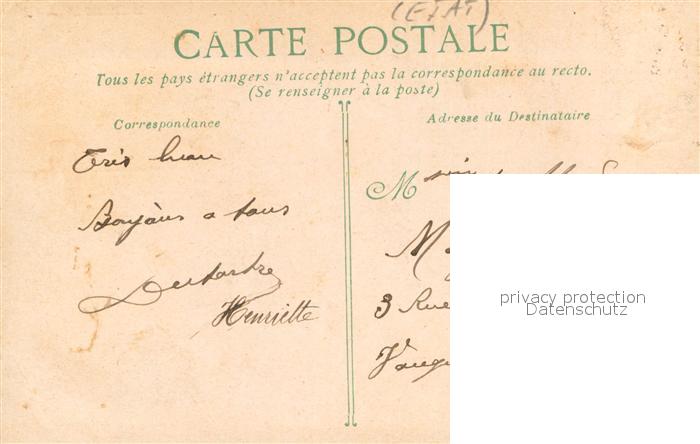 (ETAT)
CARTE POSTALE
Tous les pays étrangers n'acceptent pas la correspondance au recto.
(Se renseigner à la poste)
Correspondance
Très beau
a tous
Henriette
Adresse du Destinataire
M
3 Rue
privacy protection
Datenschutz